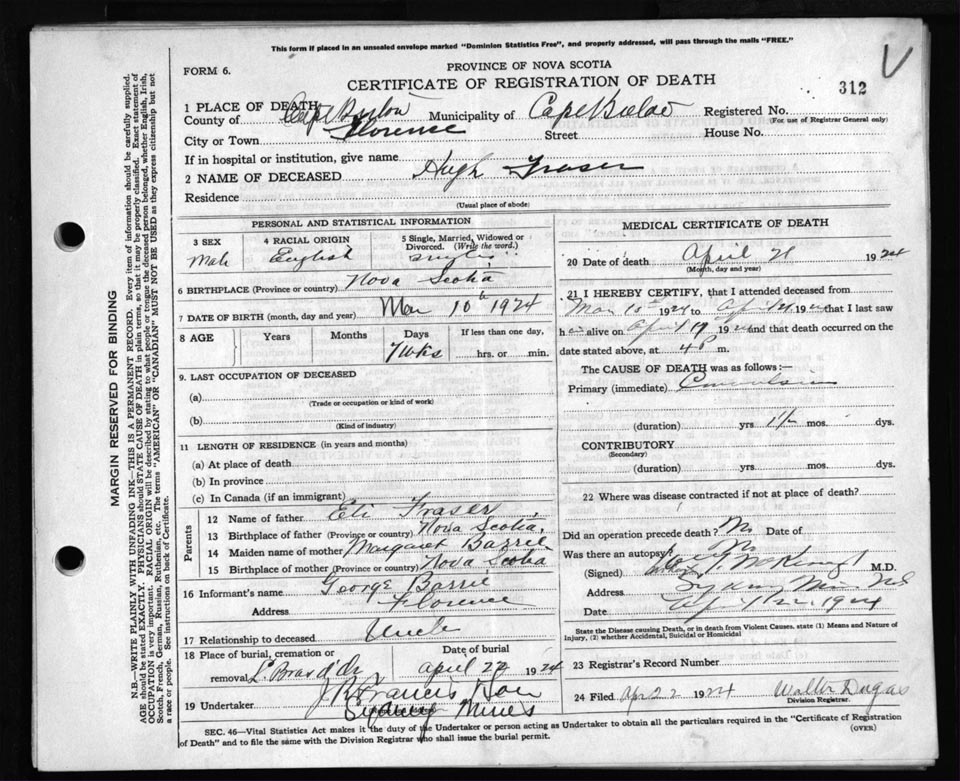 This form if placed in an unsealed envelope marked "Dominion Statistics Free", and properly addressed, will pass through the mails "FREE."
FORM 6.
PROVINCE OF NOVA SCOTIA
CERTIFICATE OF REGISTRATION OF DEATH
312
1 PLACE OF DEATH
County of Cape Breton Municipality of Cape Breton Registered No.
(For use of Registrar General only)
City or Town Florence Street House No.
If in hospital or institution, give name
2 NAME OF DECEASED Hugh Fraser
Residence
(Usual place of abode)
PERSONAL AND STATISTICAL INFORMATION
3 SEX 4 RACIAL ORIGIN 5 Single, Married, Widowed or Divorced. (Write the word.)
Male English Single
6 BIRTHPLACE (Province or country) Nova Scotia
7 DATE OF BIRTH (month, day and year) Mar 10th 1924
8 AGE Years Months Days If less than one day,
7 wks hrs. or min.
9. LAST OCCUPATION OF DECEASED
(a)
(Trade or occupation or kind of work)
(b)
(Kind of industry)
11 LENGTH OF RESIDENCE (in years and months)
(a) At place of death
(b) In province
(c) In Canada (if an immigrant)
Parents
12 Name of father Eli Fraser
13 Birthplace of father (Province or country) Nova Scotia,
14 Maiden name of mother Margaret Barrie
15 Birthplace of mother (Province or country) Nova Scotia
16 Informant's name George Barrie
Address Florence
17 Relationship to deceased Uncle
18 Place of burial, cremation or removal Date of burial
L. Bras d'Or April 22 1924
19 Undertaker J R Francis & Son
Sydney Mines
MEDICAL CERTIFICATE OF DEATH
20 Date of death April 21 1924
(Month, day and year)
21 I HEREBY CERTIFY, that I attended deceased from
Mar 10th 1924 to April 21 1924 that I last saw
h alive on April 19 1924 and that death occurred on the
date stated above, at 4 P m.
The CAUSE OF DEATH was as follows:—
Primary (immediate) Convulsions
(duration) yrs. 1 1/2 mos. dys.
CONTRIBUTORY
(Secondary)
(duration) yrs. mos. dys.
22 Where was disease contracted if not at place of death?
Did an operation precede death? No Date of
Was there an autopsy? No
(Signed) M.D.
Address Sydney Mines NS
Date April 22, 1924
State the Disease causing Death, or in death from Violent Causes, state (1) Means and Nature of
Injury, (2) whether Accidental, Suicidal or Homicidal
23 Registrar's Record Number
24 Filed Apr 22 1924 Walter Dugas
Division Registrar.
SEC. 46—Vital Statistics Act makes it the duty of the Undertaker or person acting as Undertaker to obtain all the particulars required in the "Certificate of Registration
of Death" and to file the same with the Division Registrar who shall issue the burial permit.
(OVER)
MARGIN RESERVED FOR BINDING
N.B.—WRITE PLAINLY WITH UNFADING INK—THIS IS A PERMANENT RECORD. Every item of information should be carefully supplied.
AGE should be stated EXACTLY. PHYSICIANS should STATE CAUSE OF DEATH in plain terms, so that it may be properly classified. Exact statement of
OCCUPATION is very important. RACIAL ORIGIN will be described by stating to what people or tongue the deceased person belonged, whether English, Irish,
Scotch, French, German, Russian, Ruthenian, etc. The terms "AMERICAN" OR "CANADIAN" MUST NOT BE USED as they express citizenship but not
a race or people. See instructions on back of Certificate.